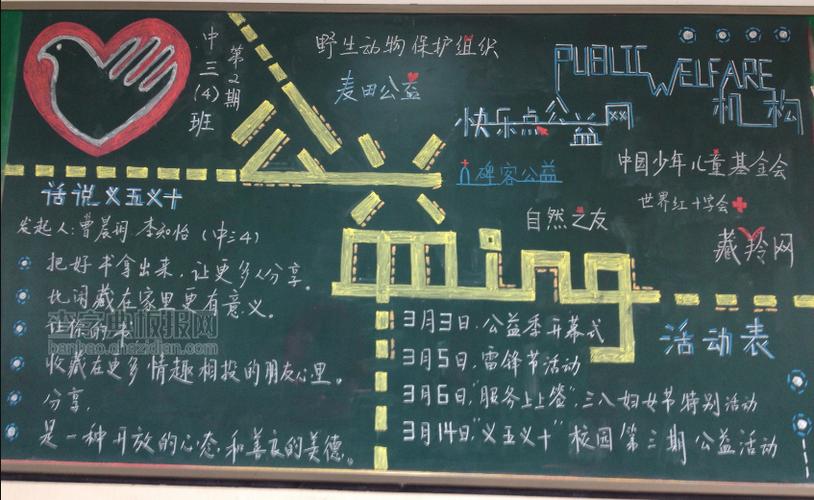 中三(4)班
第2期
野生动物保护组织
麦田公益
PUBLIC WELFARE
机构
快乐点公益网
碑客公益
中国少年儿童基金会
世界红十字会
自然之友
藏羚网
公益
ming
话说义五义十
发起人:曹晨润 李知怡(中三4)
把好书拿出来,让更多人分享。
比闲藏在家里更有意义。
让你的书
收藏在更多情趣相投的朋友心里。
分享,
是一种开放的心态和善良的美德。
活动表
3月3日,公益季开幕式
3月5日,雷锋节活动
3月6日,"服务上上签",三八妇女节特别活动
3月14日"义五义十"校园第三期公益活动
hanbao.chazidian.com